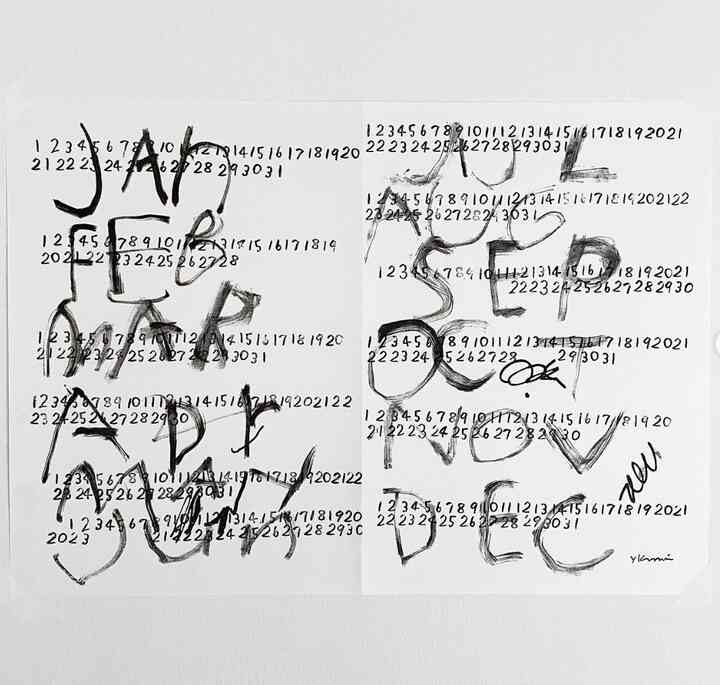 JAN
1 2 3 4 5 6 7 8 9 10 11 12 13 14 15 16 17 18 19 20
21 22 23 24 25 26 27 28 29 30 31
FEB
1 2 3 4 5 6 7 8 9 10 11 12 13 14 15 16 17 18 19
20 21 22 23 24 25 26 27 28
MAR
1 2 3 4 5 6 7 8 9 10 11 12 13 14 15 16 17 18 19 20
21 22 23 24 25 26 27 28 29 30 31
Apr
1 2 3 4 5 6 7 8 9 10 11 12 13 14 15 16 17 18 19 20 21 22
23 24 25 26 27 28 29 30
MAY
1 2 3 4 5 6 7 8 9 10 11 12 13 14 15 16 17 18 19 20 21 22
23 24 25 26 27 28 29 30 31
JUN
1 2 3 4 5 6 7 8 9 10 11 12 13 14 15 16 17 18 19 20
2023 21 22 23 24 25 26 27 28 29 30
JUL
1 2 3 4 5 6 7 8 9 10 11 12 13 14 15 16 17 18 19 20 21
22 23 24 25 26 27 28 29 30 31
AUG
1 2 3 4 5 6 7 8 9 10 11 12 13 14 15 16 17 18 19 20 21 22
23 24 25 26 27 28 29 30 31
SEP
1 2 3 4 5 6 7 8 9 10 11 12 13 14 15 16 17 18 19 20 21
22 23 24 25 26 27 28 29 30
OCT
1 2 3 4 5 6 7 8 9 10 11 12 13 14 15 16 17 18 19 20 21
22 23 24 25 26 27 28 29 30 31
NOV
1 2 3 4 5 6 7 8 9 10 11 12 13 14 15 16 17 18 19 20
21 22 23 24 25 26 27 28 29 30
DEC
1 2 3 4 5 6 7 8 9 10 11 12 13 14 15 16 17 18 19 20 21
22 23 24 25 26 27 28 29 30 31